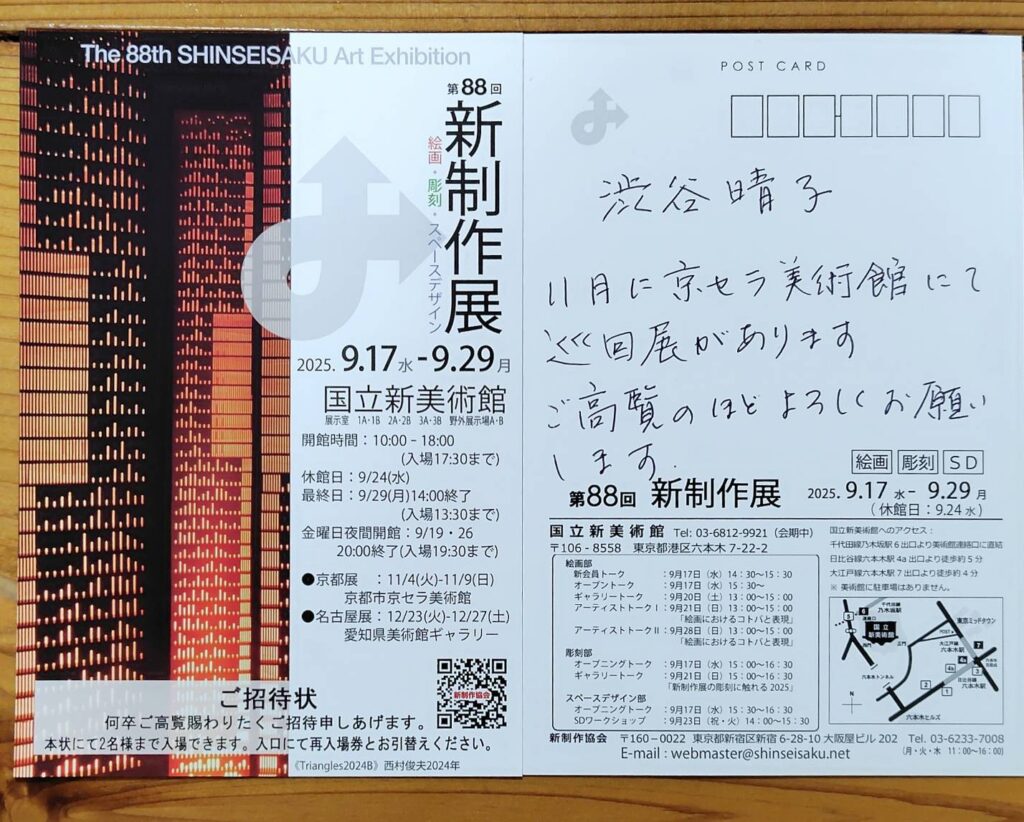 The 88th SHINSEISAKU Art Exhibition
第88回
新制作展
絵画・彫刻・スペースデザイン
2025. 9.17水 - 9.29月
国立新美術館
展示室 1A・1B 2A・2B 3A・3B 野外展示場A・B
開館時間：10:00 - 18:00
(入場17:30まで)
休館日：9/24(水)
最終日：9/29(月)14:00終了
(入場13:30まで)
金曜日夜間開館：9/19・26
20:00終了(入場19:30まで)
●京都展 ：11/4(火)-11/9(日)
京都市京セラ美術館
●名古屋展：12/23(火)-12/27(土)
愛知県美術館ギャラリー
新制作協会
ご招待状
何卒ご高覧賜わりたくご招待申しあげます。
本状にて2名様まで入場できます。入口にて再入場券とお引替えください。
《Triangles2024B》西村俊夫2024年
POST CARD
渋谷晴子
11月に京セラ美術館にて
巡回展があります
ご高覧のほどよろしくお願い
します.
絵画 彫刻 SD
第88回 新制作展 2025. 9.17 水 - 9.29 月
(休館日：9.24水)
国立新美術館 Tel: 03-6812-9921（会期中）
〒106-8558 東京都港区六本木 7-22-2
絵画部
新会員トーク ：9月17日（水）14：30～15：30
オープントーク ：9月17日（水）15：30～
ギャラリートーク ：9月20日（土）13：00～15：00
アーティストトークⅠ：9月21日（日）13：00～15：00
「絵画におけるコトバと表現」
アーティストトークⅡ：9月28日（日）13：00～15：00
「絵画におけるコトバと表現」
彫刻部
オープニングトーク ：9月17日（水）15：00～16：30
ギャラリートーク ：9月21日（日）15：00～16：30
「新制作展の彫刻に触れる 2025」
スペースデザイン部
オープニングトーク ：9月17日（水）15：00～16：30
SDワークショップ ：9月23日（祝・火）14：00～15：30
国立新美術館へのアクセス：
千代田線乃木坂駅 6 出口より美術館連絡口に直結
日比谷線六本木駅 4a 出口より徒歩約 5 分
大江戸線六本木駅 7 出口より徒歩約 4 分
※ 美術館に駐車場はありません。
千代田線
乃木坂駅
国立
新美術館
東京ミッドタウン
大江戸線
六本木駅
六本木トンネル
日比谷線
六本木駅
六本木ヒルズ
N
新制作協会 〒160-0022 東京都新宿区新宿 6-28-10 大阪屋ビル 202 Tel. 03-6233-7008
E-mail : webmaster@shinseisaku.net (月・火・木 11：00～16：00)